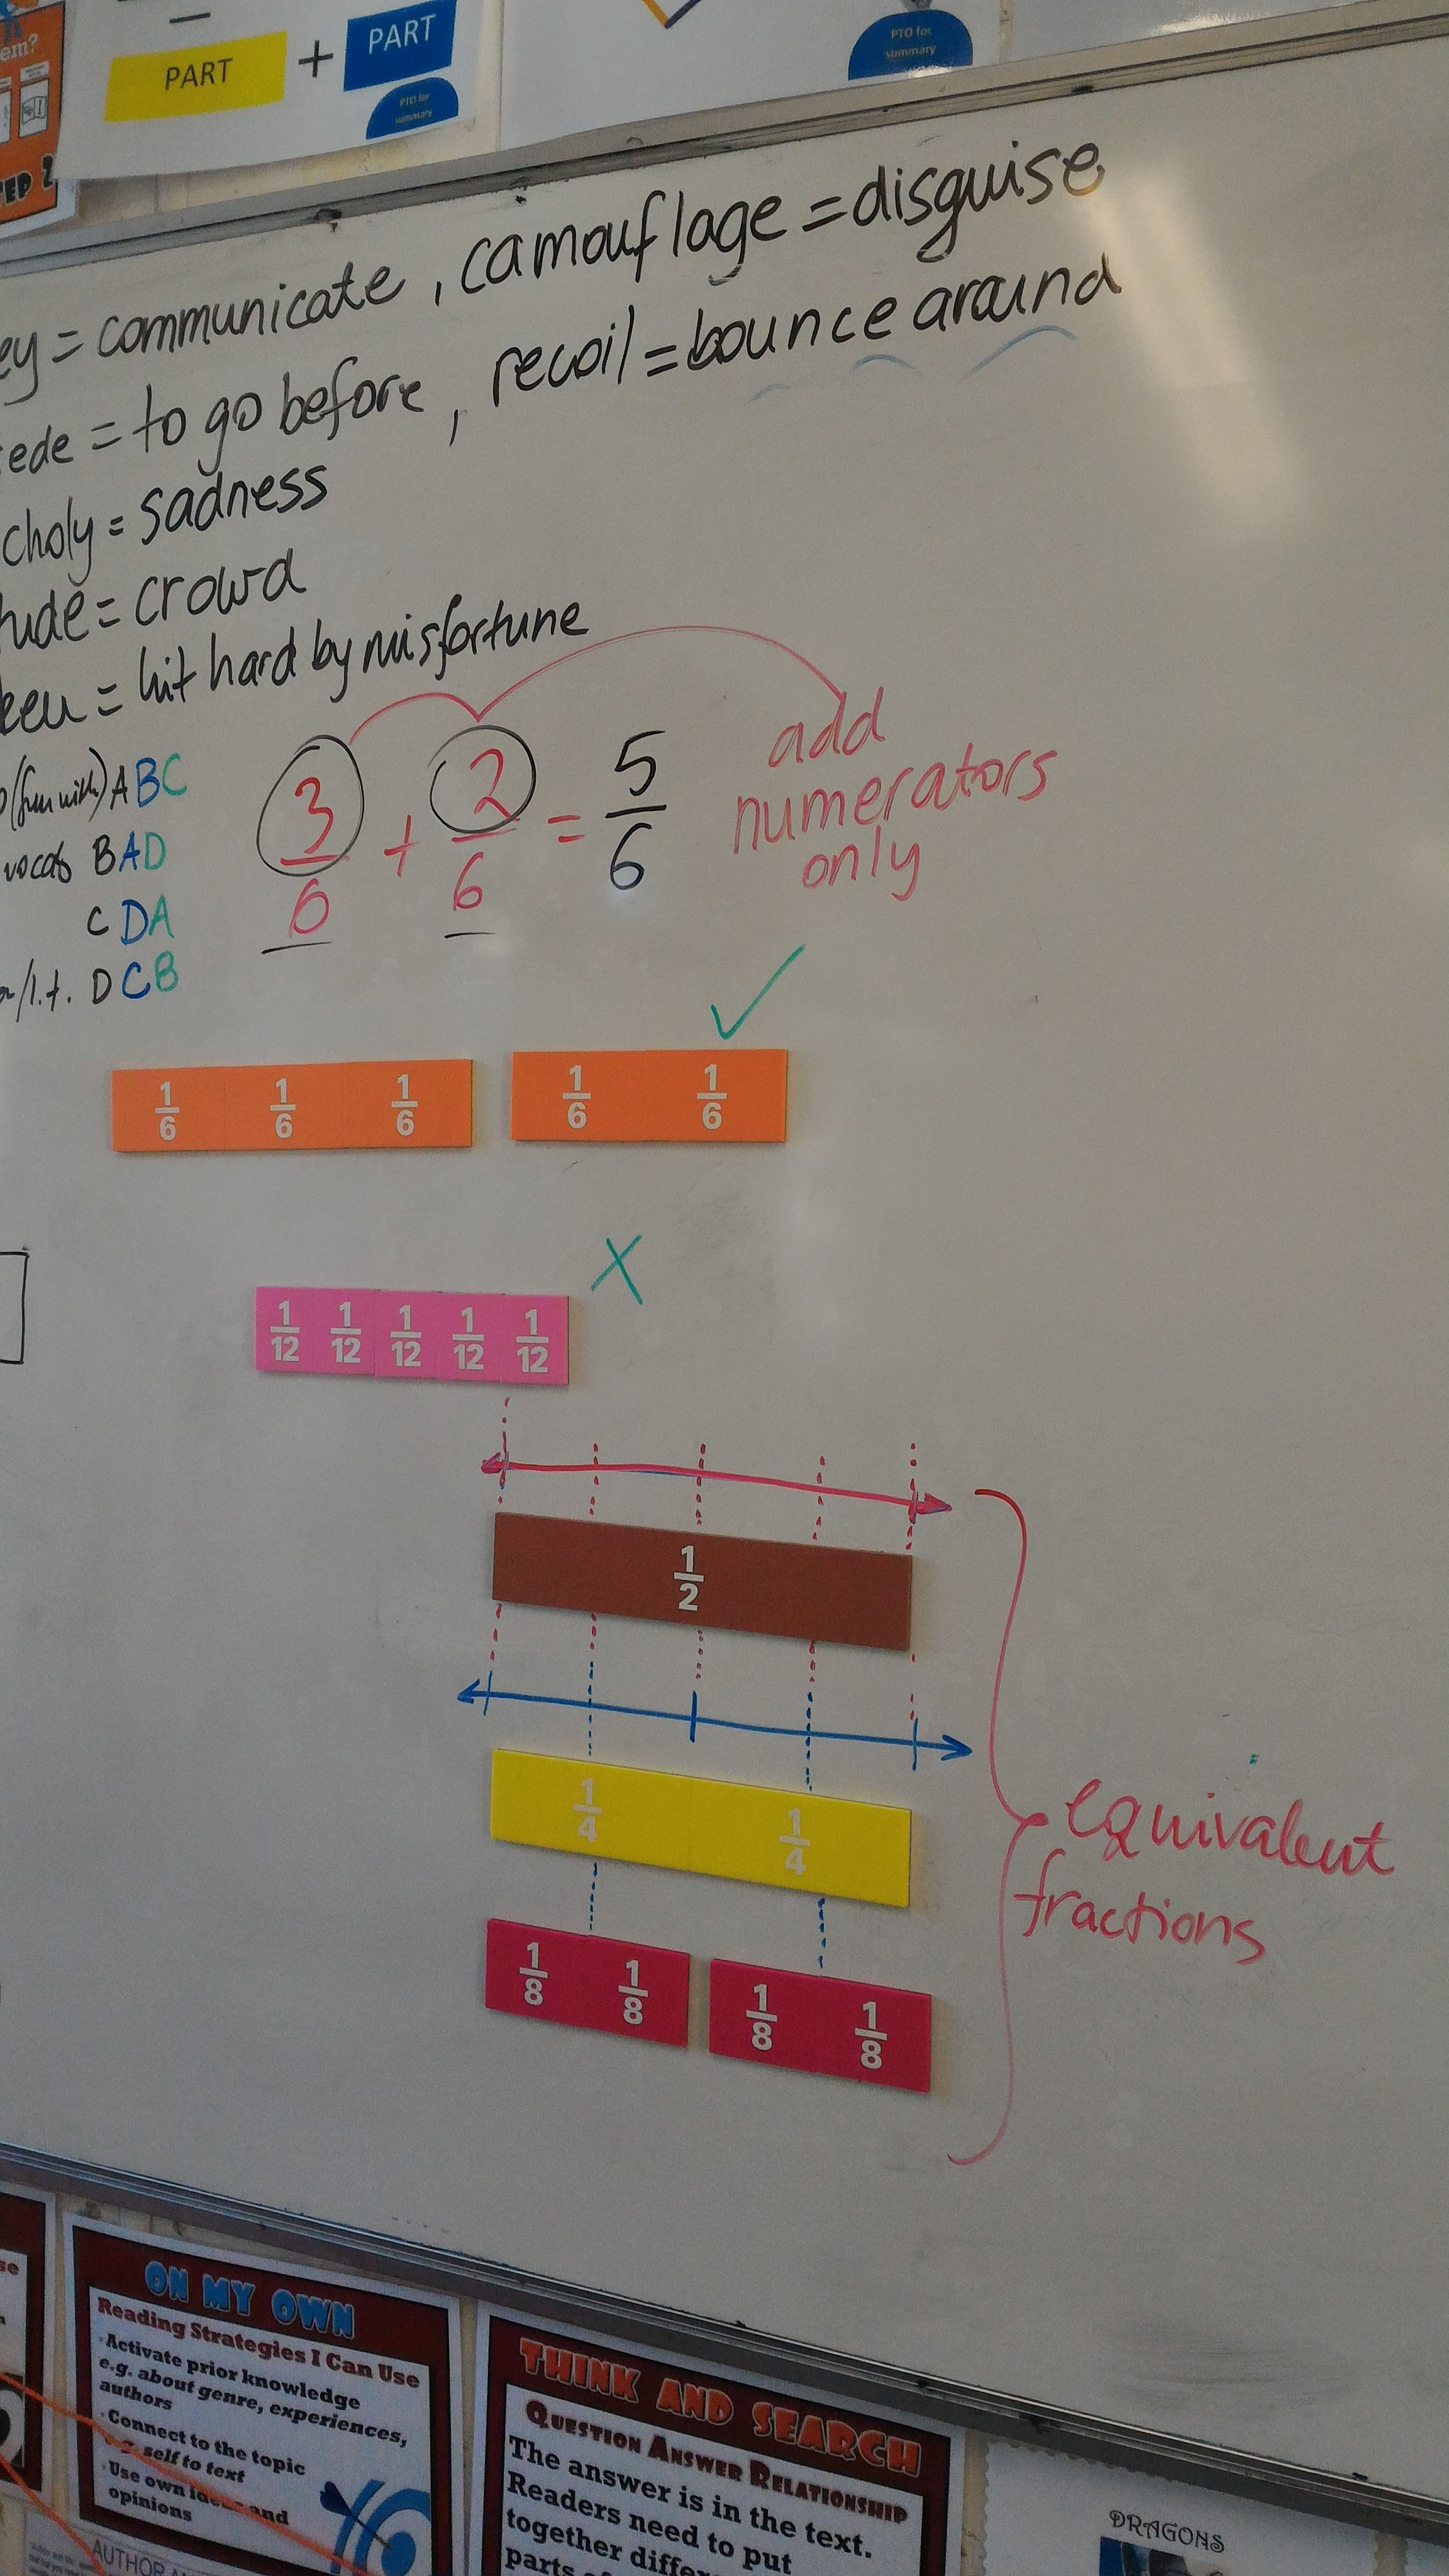 em?
PART + PART
PTO for
summary
PTO for
summary
EP 2
ey = communicate, camouflage = disguise
ede = to go before, recoil = bounce around
choly = sadness
tude = crowd
= hit hard by misfortune
(fun with) ABC
vocab BAD
CDA
/l.t. DCB
3/6 + 2/6 = 5/6
add
numerators
only
✓
1/6 1/6 1/6 1/6 1/6
X
1/12 1/12 1/12 1/12 1/12
1/2
1/4 1/4
1/8 1/8 1/8 1/8
equivalent
fractions
ON MY OWN
Reading Strategies I Can Use
· Activate prior knowledge
e.g. about genre, experiences,
authors
· Connect to the topic
e.g. self to text
· Use own ideas and
opinions
AUTHOR
THINK AND SEARCH
QUESTION ANSWER RELATIONSHIP
The answer is in the text.
Readers need to put
together differe
parts
DRAGONS